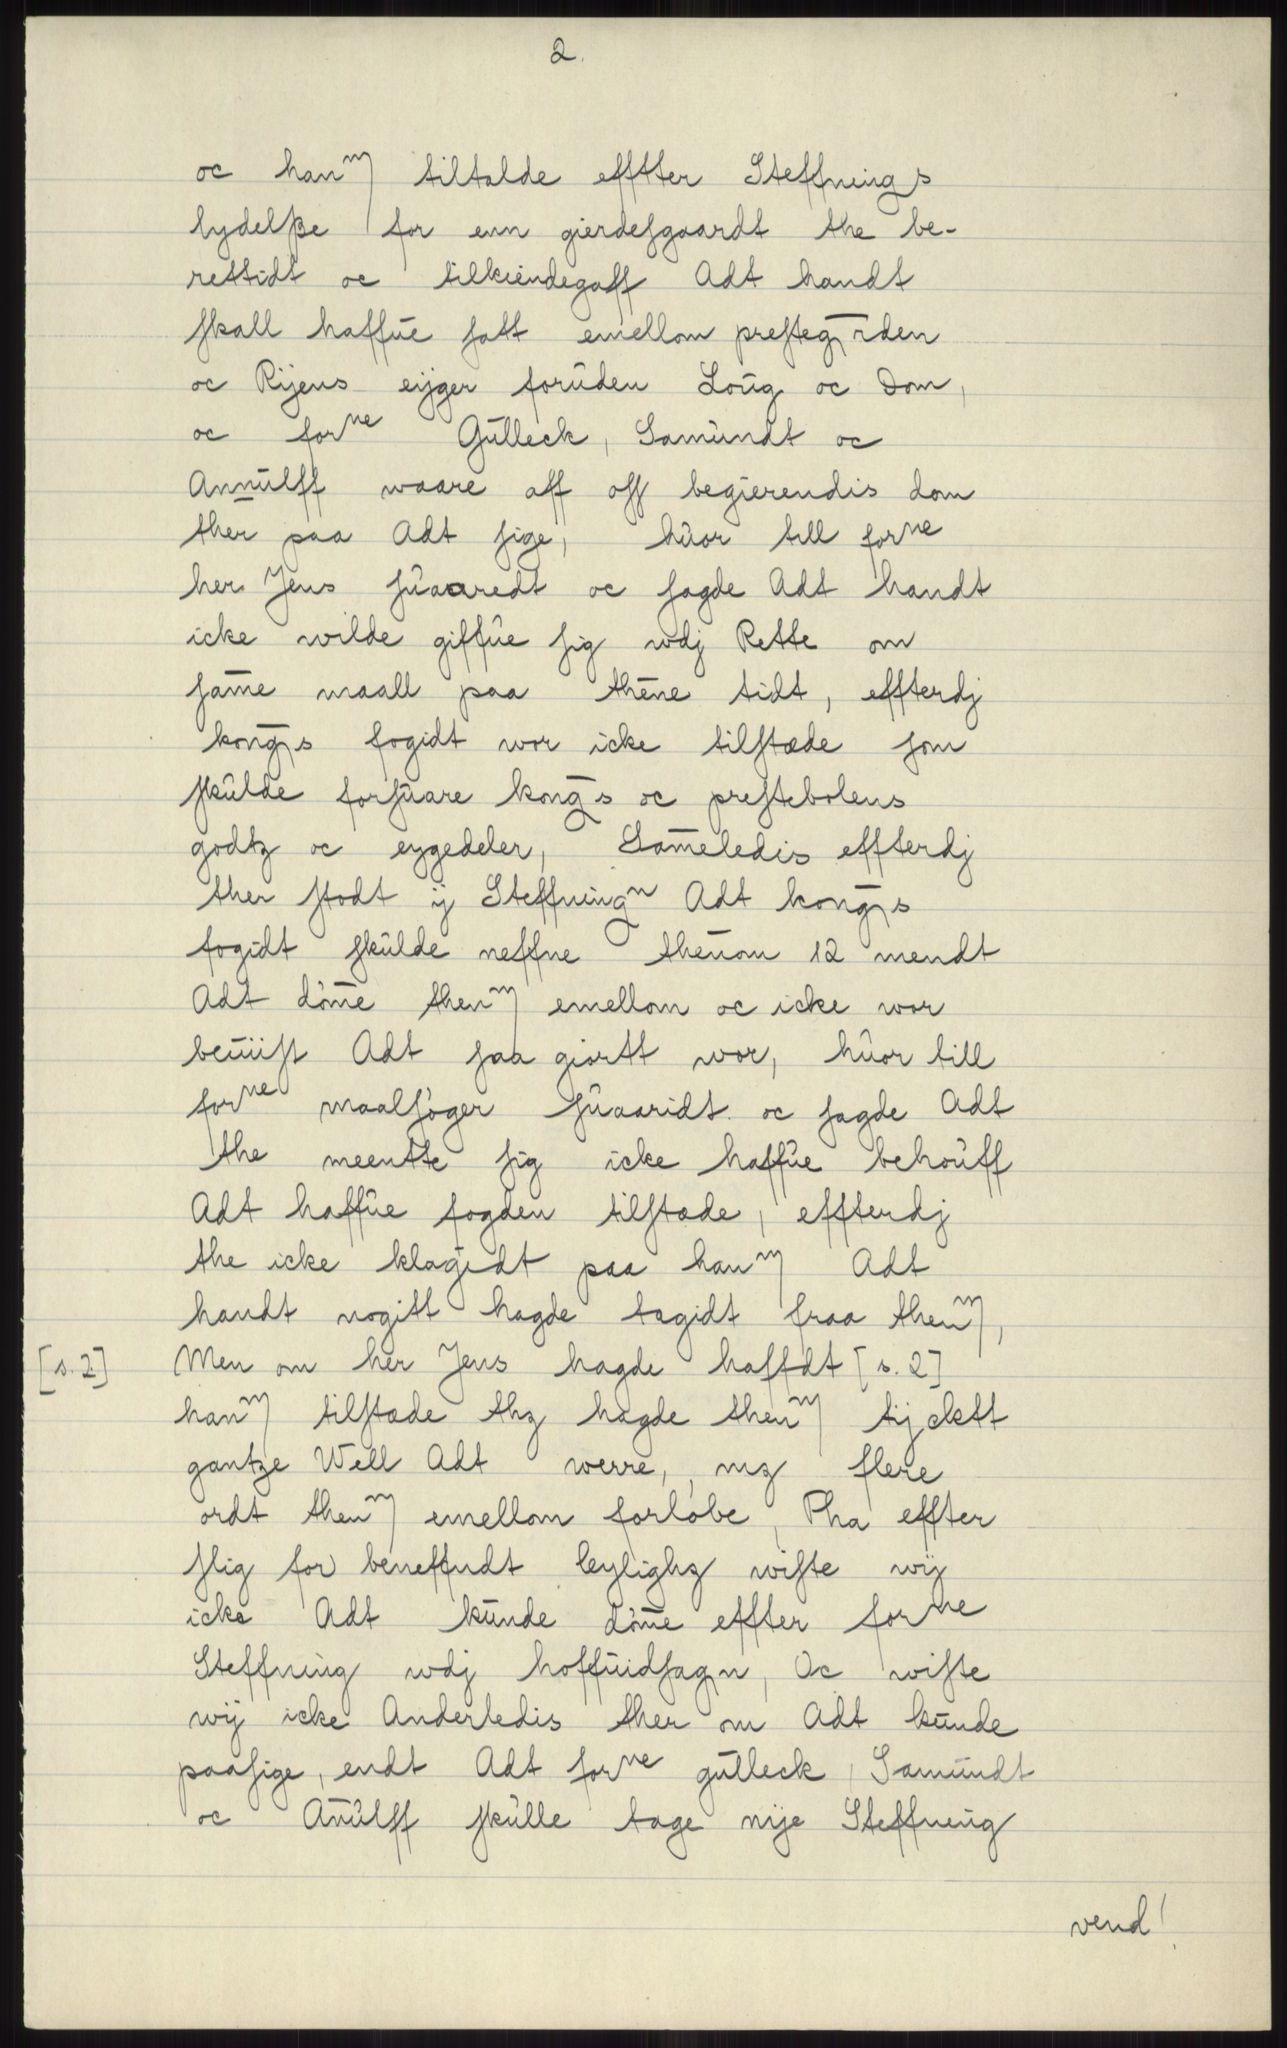 2.
oc hanm tiltalde effter Steffnings
lydelße for enn gierdesgaardt the be-
rettidt oc tilkiendegaff Adt handt
skall haffûe satt emellom prestegr̄den
oc Rijens eijger forûden Loûg oc Dom,
oc forne Gûlleck, Samûndt oc
Annûlff waare aff oss begierendis dom
ther paa Adt sige, hûor till forne
her Jens sûaaredt oc sagde Adt handt
icke wilde giffûe sig wdj Rette om
sam̄e maall paa then̄e tidt, effterdj
kong̅s fogidt wor icke tilstæde som
skûlde forsûare kong̅s oc prestebolens
godtz oc eygedeler, Sam̄eledis effterdj
ther stodt ij Steffningn Adt kong̅s
fogidt skûlde neffne then̄om 12 mendt
Adt döm̄e thenm emellom oc icke wor
beûiist Adt saa giortt wor, hûor till
forne maalsöger sûaaridt oc sagde Adt
the meentte sig icke haffûe behoûff
Adt haffûe fogden tilstæde, effterdj
the icke klagidt paa hanm Adt
handt nogitt hagde tagidt fraa thenm,
[s. 2] Men om her Jens hagde haffdt [s. 2]
hanm tilstæde thz hagde thenm tijcktt
gantze Well Adt werre, mz flere
ordt thenm emellom forlobe, Pha effter
slig for beneffndt leylighz wiste wij
icke Adt kûnde döm̄e effter forne
Steffning wdj hoffûidsagn, Oc wiste
wij icke Anderledis ther om Adt kûnde
paasige, endt Adt forne gûlleck, Samûndt
oc An̄ûlff skûlle tage nije Steffning
vend!